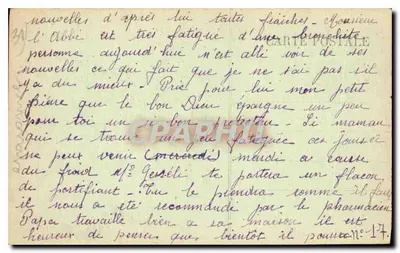 nouvelles d'après lui toutes fraîches - Monsieur
l'Abbé est très fatigué d'une bronchite
personne aujourd'hui n'est allé voir de ses
CARTE POSTALE
nouvelles ce qui fait que je ne sai pas s'il
y a du mieux - Prie pour lui mon petit
Pierre que le bon Dieu épargne un peu
pour toi un si bon - Si maman
qui se trouve un peu fatiguée ces jours-ci
ne peux venir (mercredi) mardi a cause
du froid te portera un flacon
de fortifiant - Tu le prendra comme il faut
il nous a été recommandé par le pharmacien
Papa travaille bien a sa maison il est
heureux de penser que bientôt il pourra
N° 17